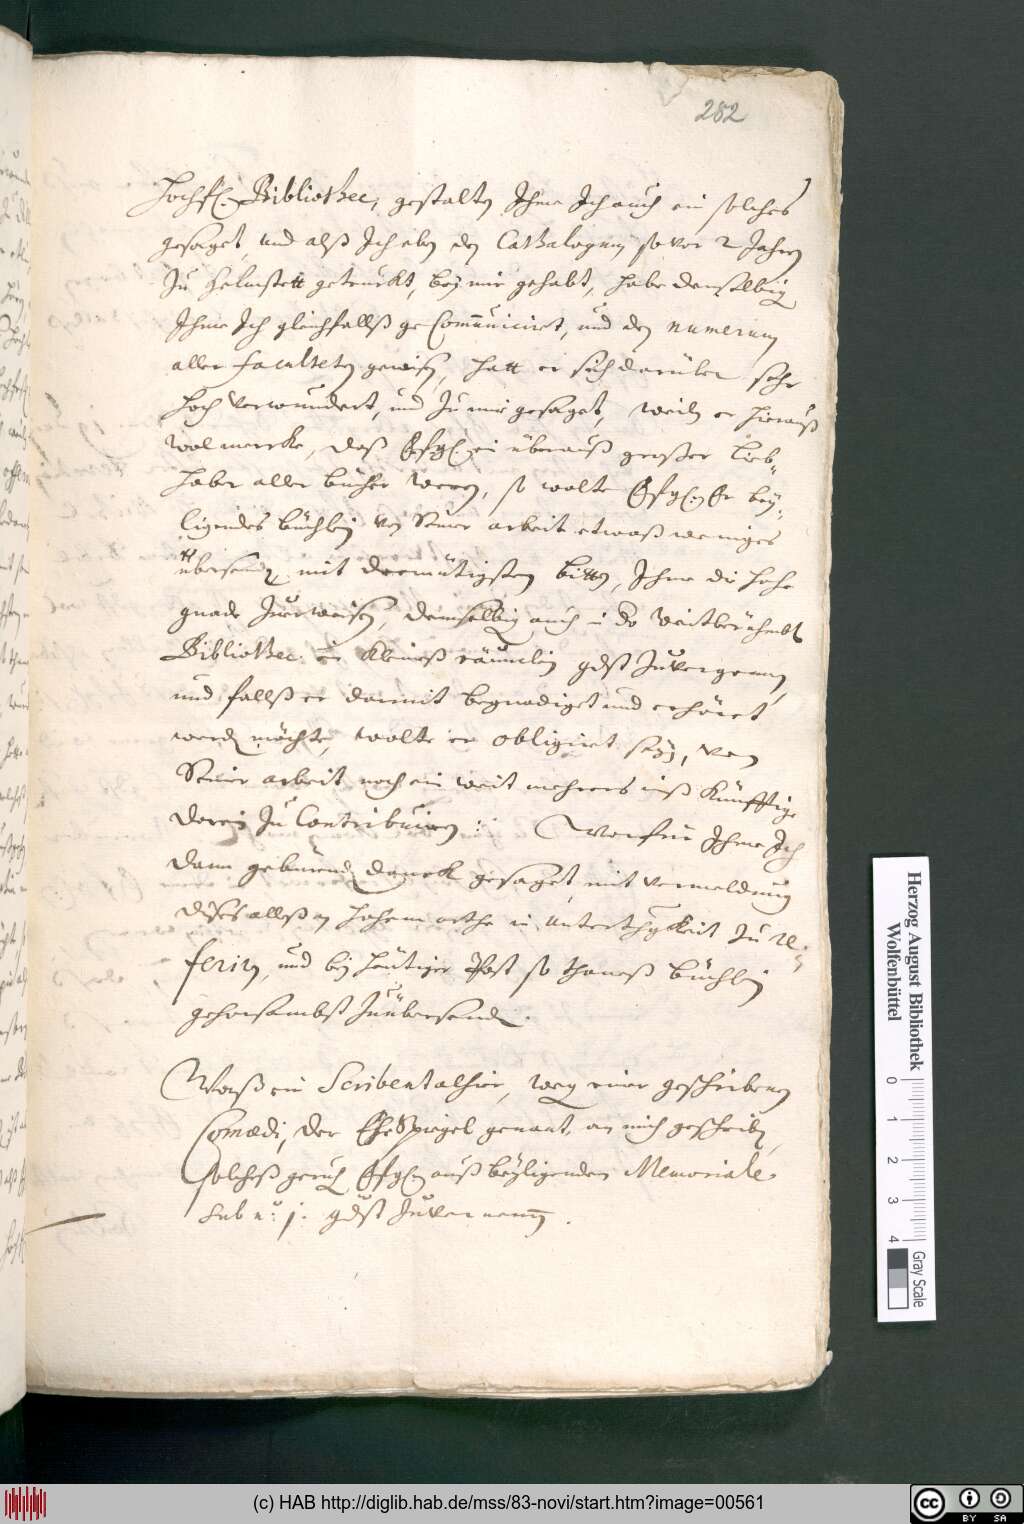 282
Hochf. Bibliothec, gestalten Ihme Ich auch ein solches
gesaget, und alß Ich eben den Cathalogum, so vor 2 Jahren
Zu Helmstett getruckt, bey mir gehabt, habe denselbigen
Ihme Ich gleichfallß geCommuniciret, und den numerum
aller faculteten gewisen, hatt er sich darüber sehr
hoch verwundert, und Zu mir gesaget, weiln er hierauß
wol mercke, daß Efg. ein überauß grosser Lieb-
haber aller bücher weren, so wolte Efg. Er bey-
ligendes büchlein von Seiner arbeit etwaß weniges
übersenden mit demütigsten bitten, Ihme die hohe
gnade Zuerweisen, demselbigen auch in do weitberühmbt
Bibliothec ein kleineß räumlein gdst Zuvergonnen,
und fallß er darmit begnadiget und erhöret
werden möchte, wolte er obligirt sein, von
Seiner arbeit noch ein weit mehrers inß künfftige
darein Zu Contribuiren: Worfür Ihme Ich
dann gebürenden danck gesaget, mit vermeldung
dises allß an hohem orthe in Unterthgkeit Zu re-
feriren, und bey heütiger Post so thaneß büchlein
gehorsambst Zuübersenden.
Waß ein Scribent alhier, weg einer geschriebenen
Comœdi, der EheSpiegel genant, an mich geschrieben,
solcheß geruhen Efg. auß beyligendem Memoriale
sub n: 1: gdst Zuvernemen.
Herzog August Bibliothek
Wolfenbüttel
0 1 2 3 4
Gray Scale
(c) HAB http://diglib.hab.de/mss/83-novi/start.htm?image=00561
CC BY SA